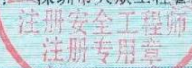 注册安全工程师
注册专用章